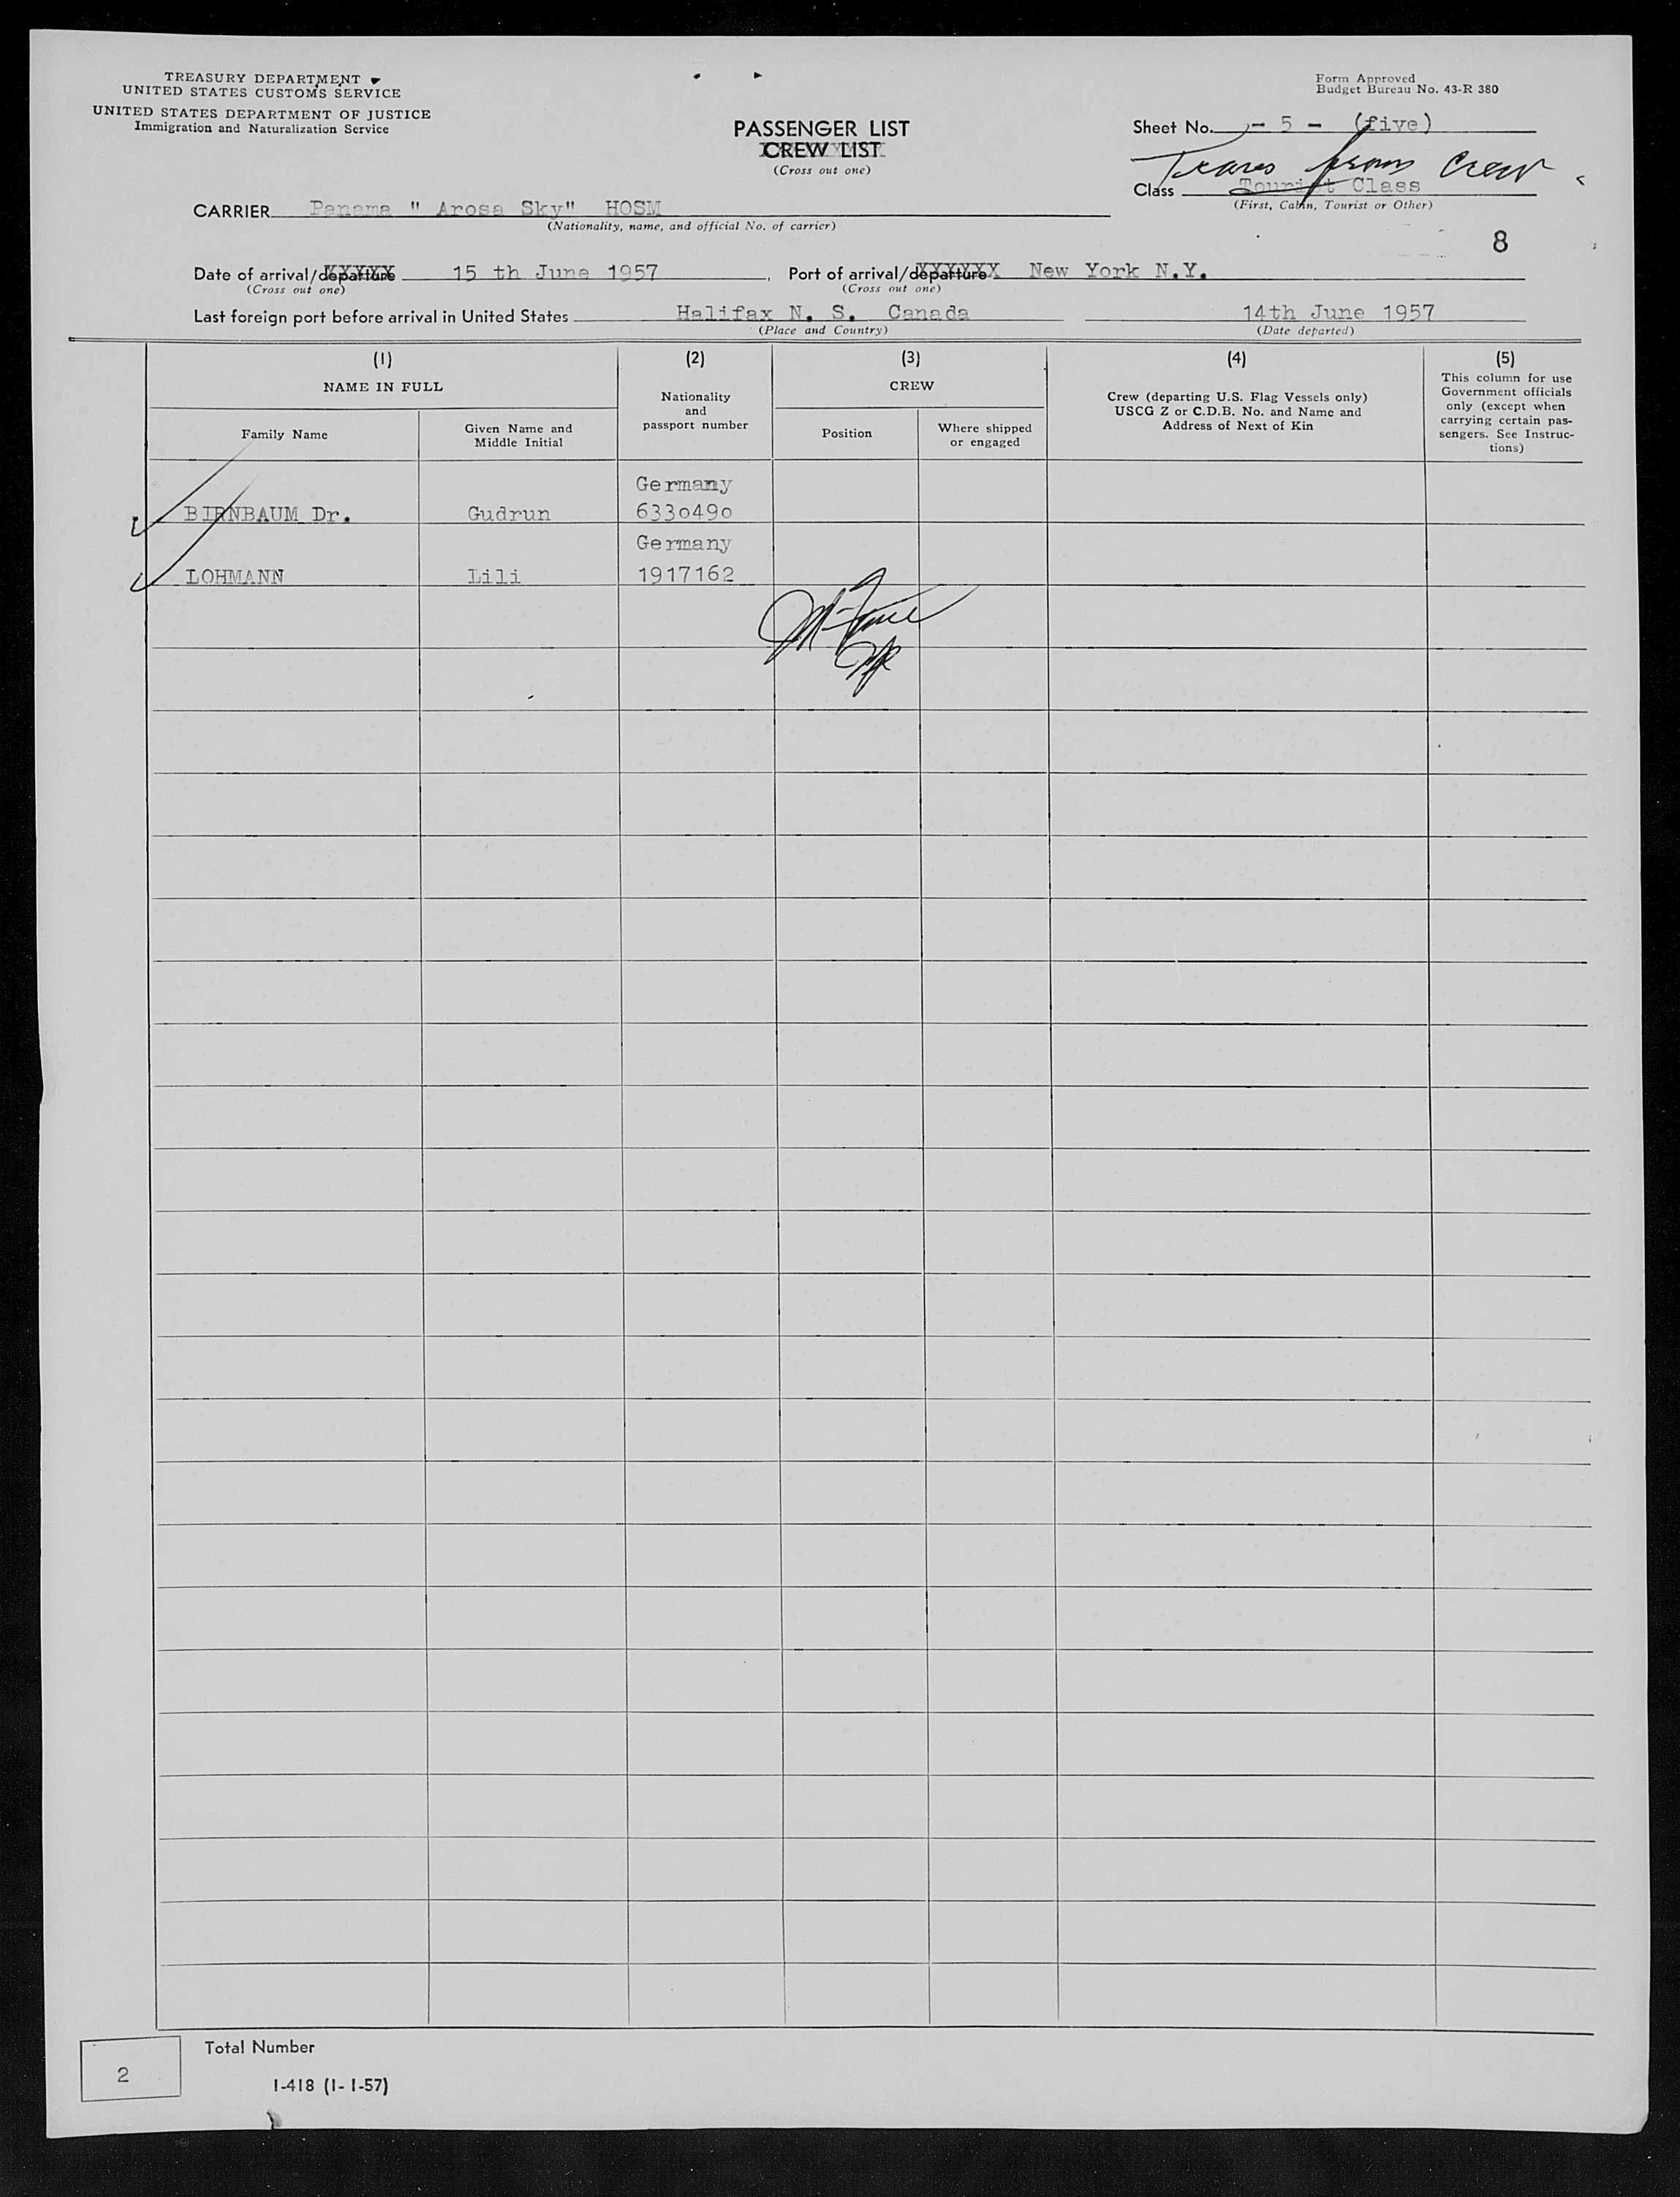 TREASURY DEPARTMENT
UNITED STATES CUSTOMS SERVICE
UNITED STATES DEPARTMENT OF JUSTICE
Immigration and Naturalization Service
Form Approved
Budget Bureau No. 43-R 380
PASSENGER LIST
CREW LIST
(Cross out one)
Sheet No. - 5 - (five)
Trans from Crew
Class Tourist Class
(First, Cabin, Tourist or Other)
CARRIER Panama " Arosa Sky" HOSM
(Nationality, name, and official No. of carrier)
8
Date of arrival/departure 15 th June 1957, Port of arrival/departure New York N.Y.
(Cross out one) (Cross out one)
Last foreign port before arrival in United States Halifax N. S. Canada 14th June 1957
(Place and Country) (Date departed)
(1) (2) (3) (4) (5)
NAME IN FULL
Family Name
Given Name and
Middle Initial
Nationality
and
passport number
CREW
Position
Where shipped
or engaged
Crew (departing U.S. Flag Vessels only)
USCG Z or C.D.B. No. and Name and
Address of Next of Kin
This column for use
Government officials
only (except when
carrying certain pas-
sengers. See Instruc-
tions)
Germany
BIRNBAUM Dr. Gudrun 633o49o
Germany
LOHMANN Lili 1917162
2
Total Number
I-418 (I-I-57)